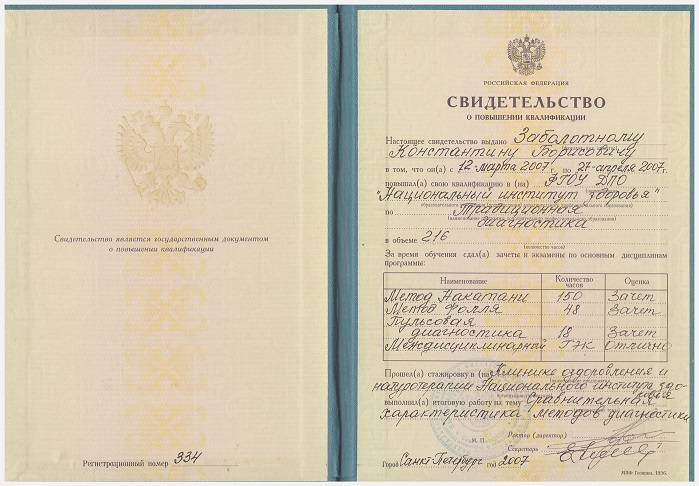 Свидетельство является государственным документом
о повышении квалификации
Регистрационный номер 334
РОССИЙСКАЯ ФЕДЕРАЦИЯ
СВИДЕТЕЛЬСТВО
О ПОВЫШЕНИИ КВАЛИФИКАЦИИ
Настоящее свидетельство выдано Заболотному
Константину Борисовичу
в том, что он(а) с 12 марта 2007г. по 27 апреля 2007г.
повышал(а) свою квалификацию в (на) ФГОУ ДПО
"Национальный институт здоровья"
по Традиционная
диагностика
в объеме 216
(количество часов)
За время обучения сдал(а) зачеты и экзамены по основным дисциплинам
программы:
Наименование Количество часов Оценка
Метод Накатани 150 Зачет
Метод Фолля 48 Зачет
Пульсовая
диагностика 18 Зачет
Междисциплинарный ГЭК Отлично
Прошел(а) стажировку в (на) Клинике оздоровления и
натуротерапии Национального института здо-
ровья
выполнил(а) итоговую работу на тему Сравнительная
характеристика методов диагностики
М. П.
Ректор (директор)
Секретарь
Город Санкт-Петербург год 2007
МПФ Гознака. 1996.